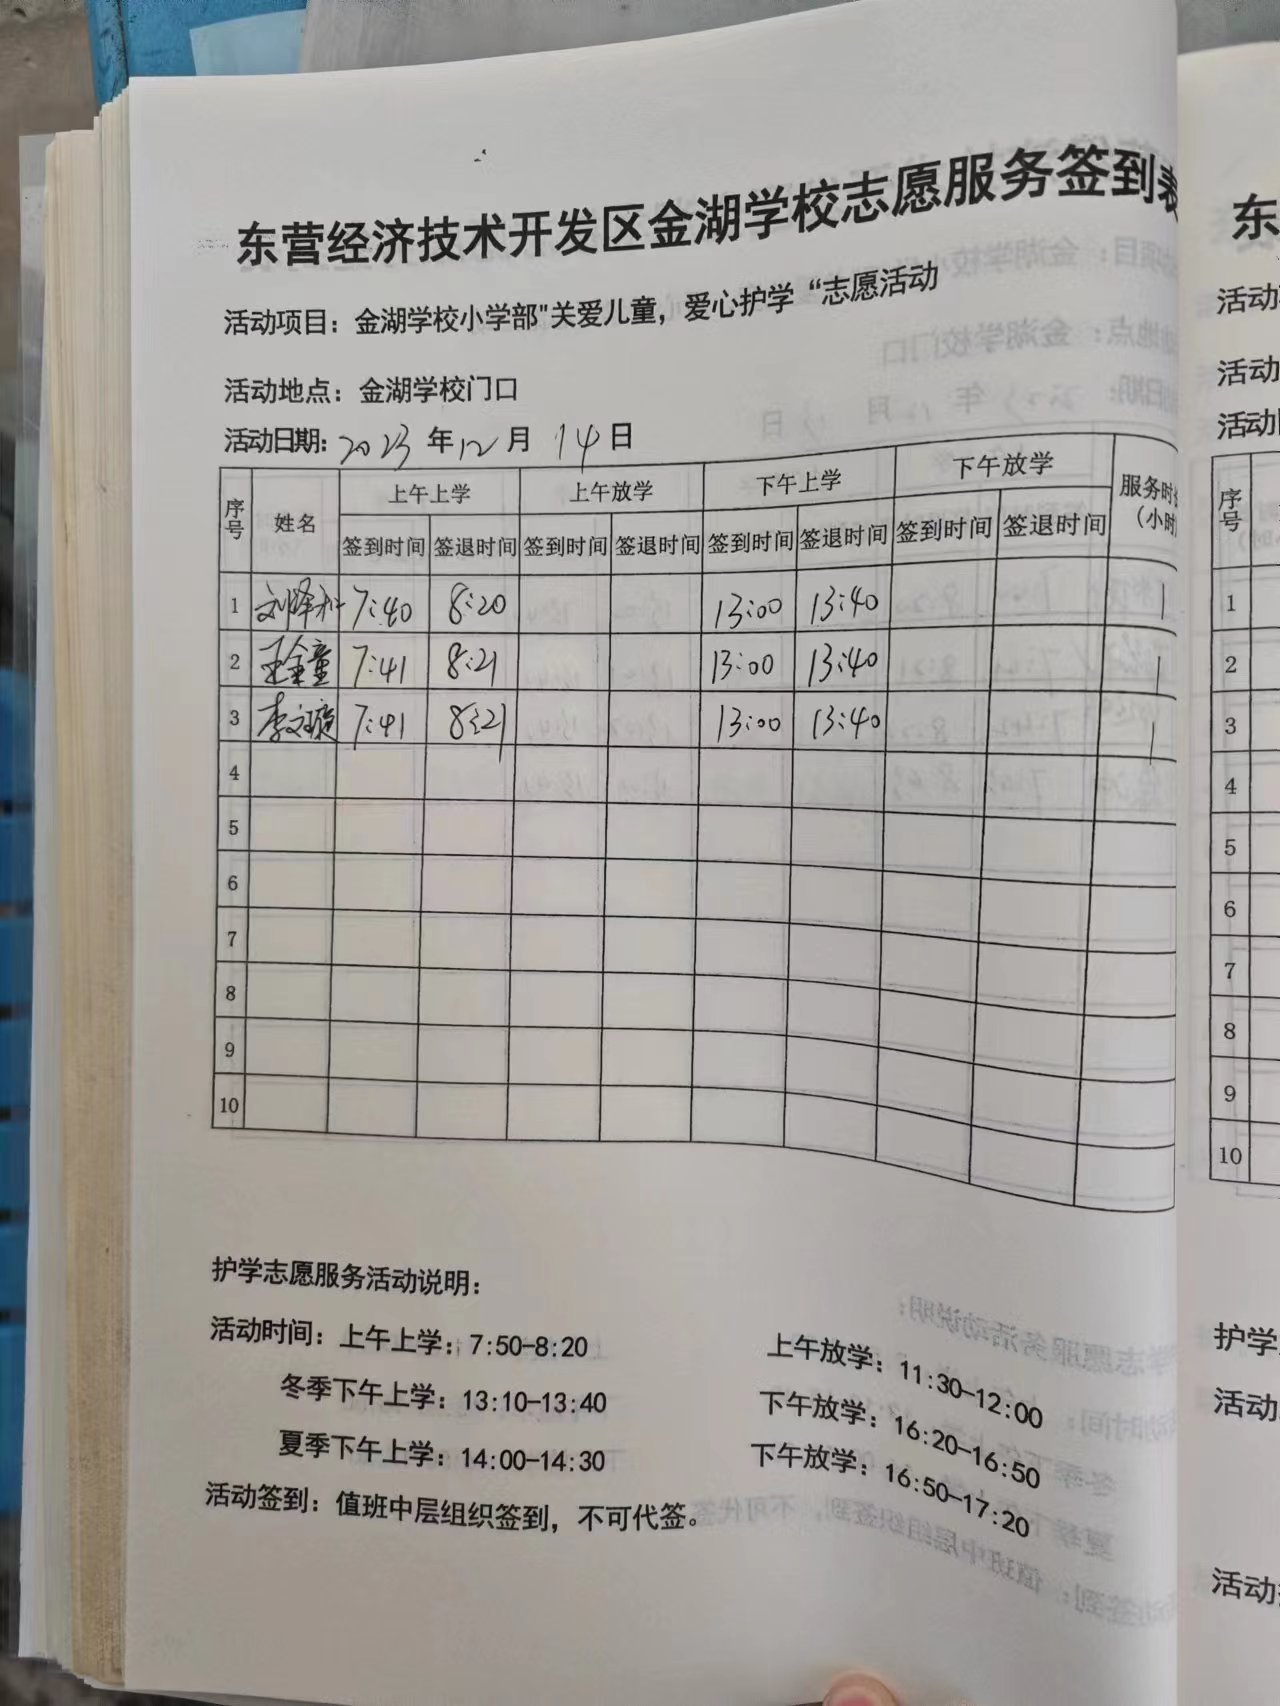 东营经济技术开发区金湖学校志愿服务签到表
活动项目：金湖学校小学部"关爱儿童，爱心护学“志愿活动
活动地点：金湖学校门口
活动日期：2023年12月14日
序号 姓名 上午上学 上午放学 下午上学 下午放学 服务时
（小时
签到时间 签退时间 签到时间 签退时间 签到时间 签退时间 签到时间 签退时间
1 7:40 8:20 13:00 13:40 1
2 王金童 7:41 8:21 13:00 13:40 1
3 李文璇 7:41 8:21 13:00 13:40 1
4
5
6
7
8
9
10
护学志愿服务活动说明：
活动时间：上午上学：7:50-8:20 上午放学：11:30-12:00
冬季下午上学：13:10-13:40 下午放学：16:20-16:50
夏季下午上学：14:00-14:30 下午放学：16:50-17:20
活动签到：值班中层组织签到，不可代签。
东
活动
活动
活动
序号
1
2
3
4
5
6
7
8
9
10
护学
活动
活动